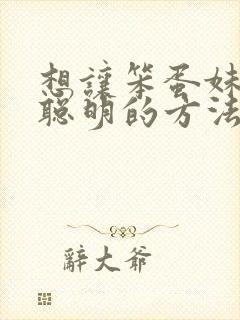 想讓笨蛋妹
聰明的方法
辭大爺